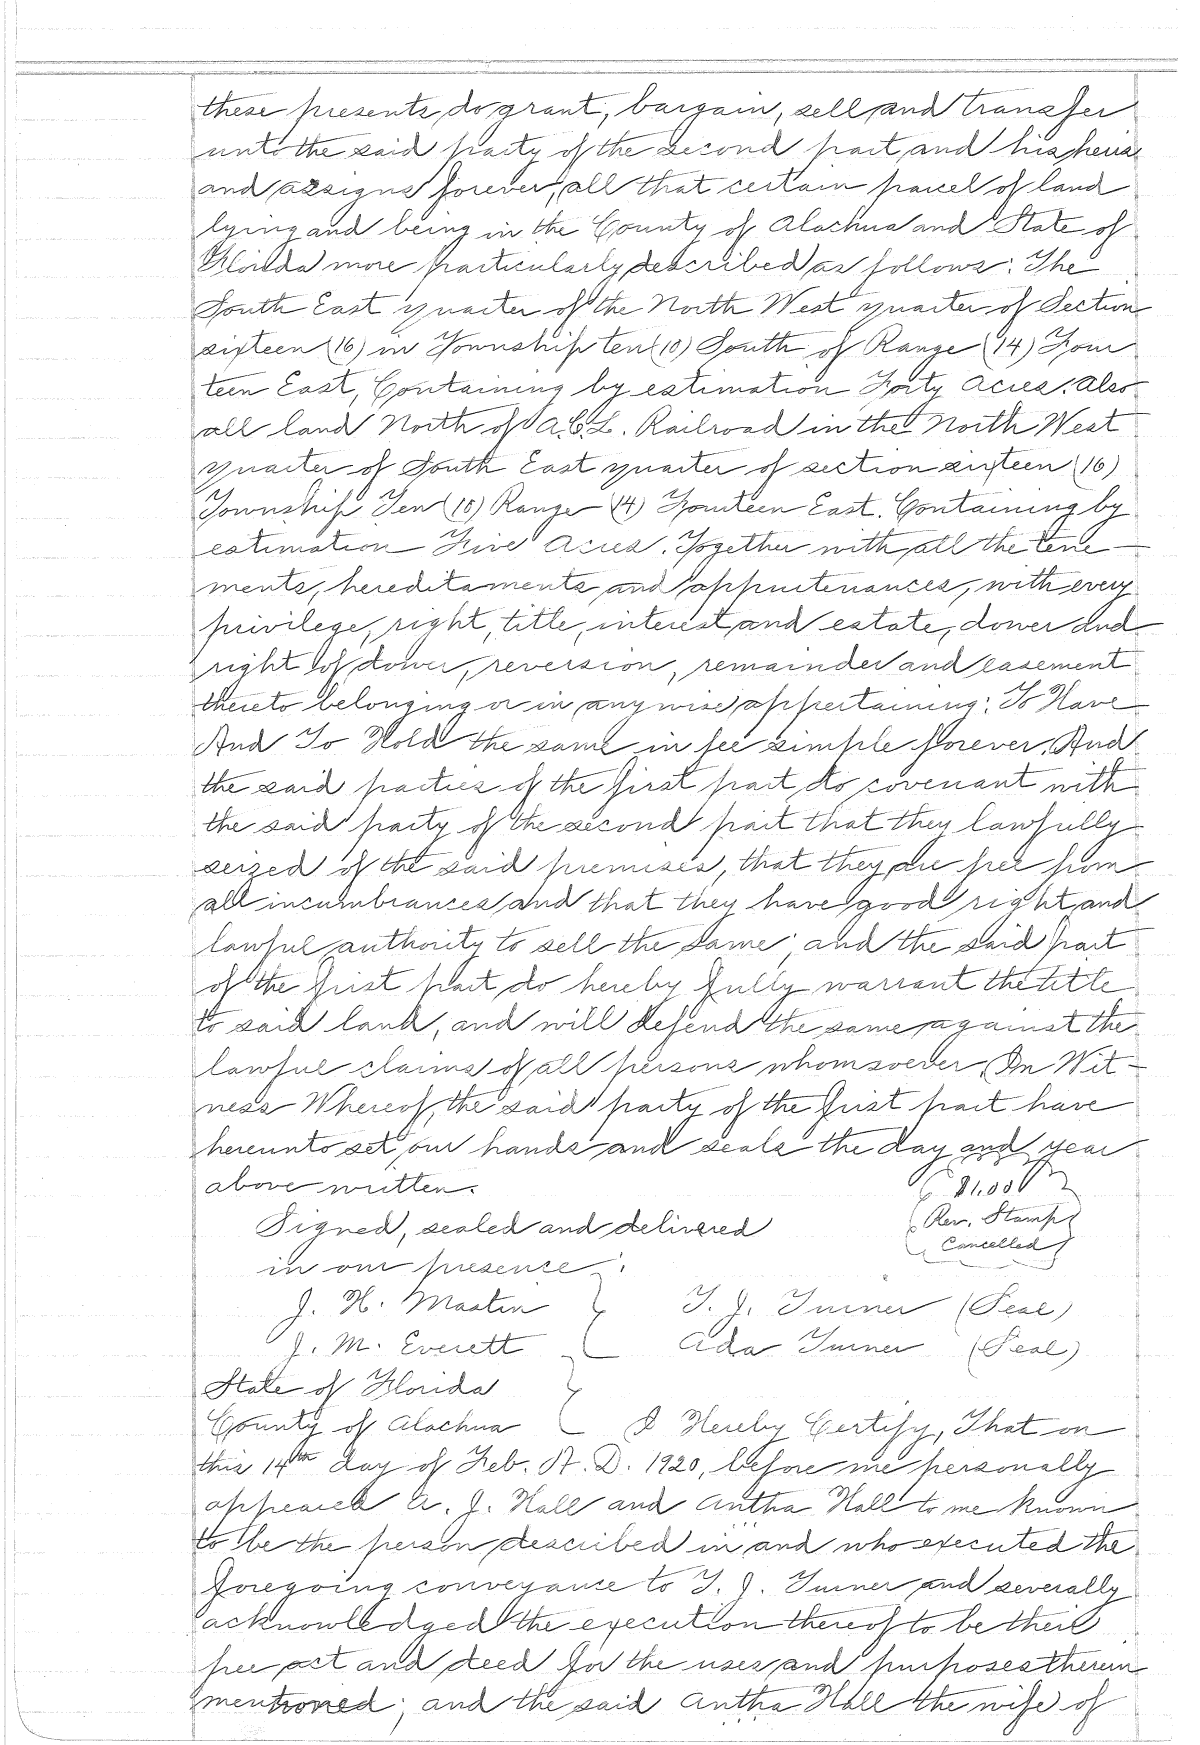 these presents do grant, bargain, sell and transfer
unto the said party of the second part and his heirs
and assigns forever, all that certain parcel of land
lying and being in the County of Alachua and State of
Florida more particularly described as follows: The
South East quarter of the North West quarter of Section
sixteen (16) in Township ten (10) South of Range (14) Four
teen East, Containing by estimation Forty Acres. Also
all land North of A.C.L. Railroad in the North West
quarter of South East quarter of section sixteen (16)
Township Ten (10) Range (14) Fourteen East. Containing by
estimation Five Acres. Together with all the tene-
ments, hereditaments and appurtenances, with every
privilege, right, title, interest and estate, dower and
right of dower, reversion, remainder and easement
thereto belonging or in anywise appertaining: To Have
And To Hold the same in fee simple forever. And
the said parties of the first part do covenant with
the said party of the second part that they lawfully
seized of the said premises, that they are free from
all incumbrances and that they have good right and
lawful authority to sell the same; and the said part
of the first part do hereby fully warrant the title
to said land, and will defend the same against the
lawful claims of all persons whomsoever. In Wit-
ness Whereof, the said party of the first part have
hereunto set our hands and seals the day and year
above written.
$1.00
Rev. Stamp
Cancelled
Signed, sealed and delivered
in our presence:
J. H. Martin T. J. Turner (Seal)
J. M. Everett Ada Turner (Seal)
State of Florida
County of Alachua I Hereby Certify, That on
this 14th day of Feb. A. D. 1920, before me personally
appeared A. J. Hall and Antha Hall to me known
to be the person described in and who executed the
foregoing conveyance to T. J. Turner and severally
acknowledged the execution thereof to be their
free act and deed for the uses and purposes therein
mentioned; and the said Antha Hall the wife of